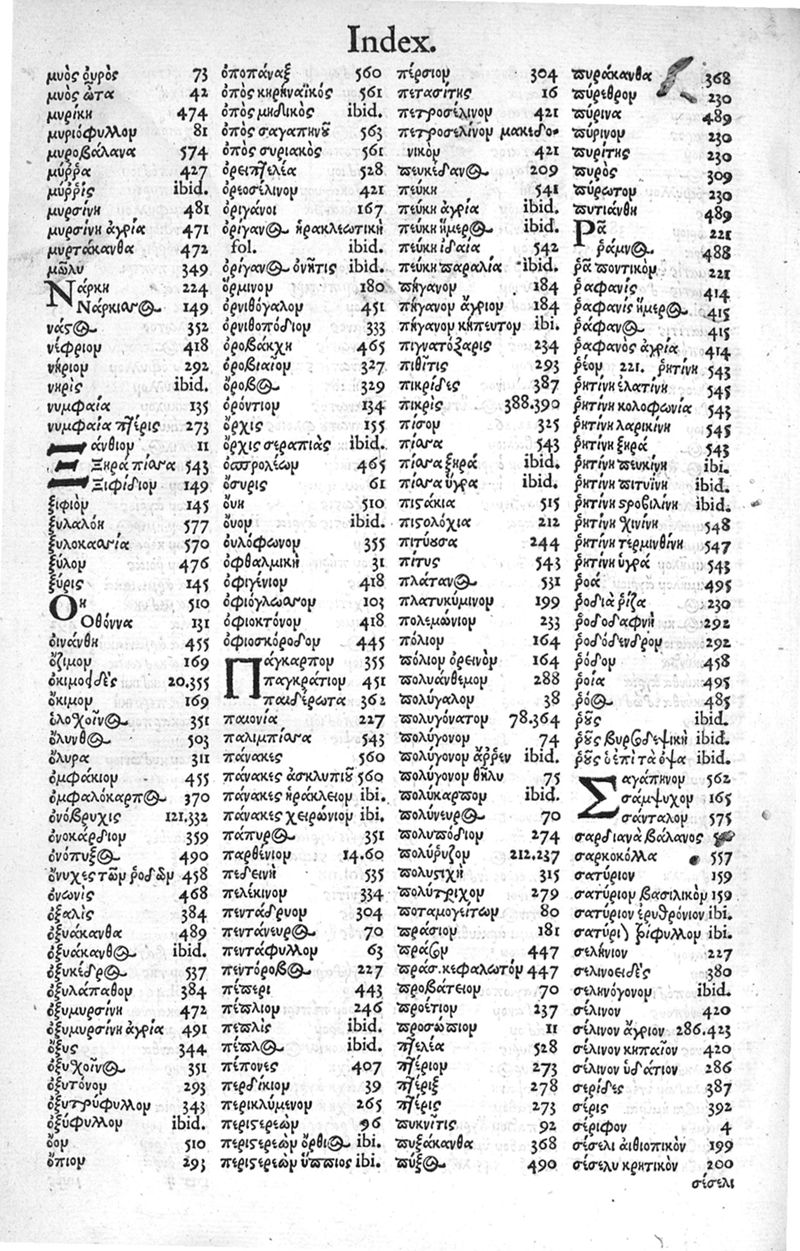 Index.
μυὸς ὀυρὸς 73
μυὸς ὦτα 42
μυρίκη 474
μυριόφυλλομ 81
μυροβάλανα 574
μύῤῥα 427
μύῤῥὶς ibid.
μυρσίνη 481
μυρσίνη ἀγρία 471
μυρτάκανθα 472
μῶλυ 349
Νάρκη 224
Νάρκιασος 149
νάςος 352
νέφριομ 418
νήριομ 292
νηρὶς ibid.
νυμφαία 135
νυμφαία πτέρις 273
Ξάνθιομ 11
Ξηρὰ πίασα 543
Ξιφίδιομ 149
ξιφιὸμ 145
ξυλαλόη 577
ξυλοκασία 570
ξύλομ 476
ξύρις 145
Οη 510
Οθόννα 131
οἰνάνθη 455
ὄζιμομ 169
ὀκιμοειδὲς 20.355
ὄκιμομ 169
ὁλοχοῖνος 351
ὄλυνθος 503
ὄλυρα 311
ὀμφάκιομ 455
ὀμφαλόκαρπος 370
ὀνόβρυχις 121.332
ὀνοκάρδιομ 359
ὀνόπυξος 490
ὄνυχες τῶμ ῥοδῶμ 458
ὀνωνὶς 468
ὀξαλὶς 384
ὀξυάκανθα 489
ὀξυάκανθος ibid.
ὀξυκέδρος 537
ὀξυλάπαθομ 384
ὀξυμυρσίνη 472
ὀξυμυρσίνη ἀγρία 491
ὄξυς 344
ὀξυχοῖνος 351
ὀξυτόνομ 293
ὀξυτρύφυλλομ 343
ὀξύφυλλομ ibid.
ὄομ 510
ὄπιομ 293
ὀποπάναξ 560
ὀπὸς κηρηναϊκὸς 561
ὀπὸς μηδικὸς ibid.
ὀπὸς σαγαπηνοῦ 563
ὀπὸς συριακὸς 561
ὀρειπτελέα 528
ὀρεοσέλινομ 421
ὀριγάνοι 167
ὀρίγανος ἡρακλεωτικὴ
fol. ibid.
ὀρίγανος ὀνῆτις ibid.
ὅρμινομ 180
ὀρνιθόγαλομ 451
ὀρνιθοπόδιομ 333
ὀροβάκχη 465
ὀροβιαῖομ 327
ὄροβος 329
ὀρόντιομ 134
ὄρχις 155
ὄρχις σεραπιὰς ibid.
ὀσπρολέωμ 465
ὄσυρις 61
ὄυη 510
ὄυομ ibid.
ὀυλόφωνομ 355
ὀφθαλμικὴ 31
ὀφιγένιομ 418
ὀφιόγλωασομ 103
ὀφιοκτόνομ 418
ὀφιοσκόροδομ 445
Πάγκαρπομ 355
παγκράτιομ 451
παιδέρωτα 362
παιονία 227
παλιμπίασα 543
πάνακες 560
πάνακες ἀσκλυπιοῦ 560
πάνακες ἡράκλειομ ibi.
πάνακες χειρώνιομ ibi.
πάπυρος 351
παρθένιομ 14.60
πεδεινὴ 535
πελέκινομ 334
πεντάδρυομ 304
πεντάνευρος 70
πεντάφυλλομ 63
πεντόροβος 227
πέπερι 443
πέπλιομ 246
πεπλὶς ibid.
πέπλος ibid.
πέπονες 407
περδίκιομ 39
περικλύμενομ 265
περιςερεὼμ 96
περιςερεὼμ ὄρθιος ibi.
περιςερεὼμ ὕππιος ibi.
πέρσιομ 304
πετασίτης 16
πετροσέλινομ 421
πετροσέλινομ μακεδο-
νικὸμ 421
πευκέδανος 209
πεύκη 541
πεύκη ἀγρία ibid.
πεύκη ἥμερος ibid.
πεύκη ἰδαία 542
πεύκη παραλία ibid.
πήγανομ 184
πήγανομ ἄγριομ 184
πήγανομ κηπευτομ ibi.
πιγνατόξαρις 234
πιθῖτις 293
πικρίδες 387
πικρὶς 388.390
πίσομ 325
πίασα 543
πίασα ξηρά ibid.
πίασα ὑγρα ibid.
πιςάκια 515
πιςολόχια 212
πιτύουσα 244
πίτυς 543
πλάτανος 531
πλατυκύμινομ 199
πολεμώνιομ 233
πόλιομ 164
πόλιομ ὀρεινὸμ 164
πολυάνθεμομ 288
πολύγαλομ 38
πολυγόνατομ 78.364
πολύγονομ 74
πολύγονομ ἄῤῥεν ibid.
πολύγονομ θῆλυ 75
πολύκαρπομ ibid.
πολύνευρος 70
πολυπόδιομ 274
πολύῤυζομ 212.237
πολυςιχὴ 315
πολύτριχομ 279
ποταμογείτωμ 80
πράσιομ 181
πράσομ 447
πράσ.κεφαλωτόμ 447
προβάτειομ 70
προέτιομ 237
προσώπιομ 11
πτελέα 528
πτέριομ 273
πτέριξ 278
πτέρις 273
πυκνίτις 92
πυξάκανθα 368
πύξος 490
πυράκανθα 368
πύρεθρομ 230
πύρινα 489
πύρινομ 230
πυρίτης 230
πυρὸς 309
πύρωτομ 230
πυτιάνθη 489
Ρᾶ 221
ῥάμνος 488
ῥᾶ ποντικὸμ 221
ῥαφανὶς 414
ῥαφανὶς ἥμερος 415
ῥάφανος 415
ῥαφανὸς ἀγρία 414
ῥέομ 221. ῥητίνη 543
ῥητίνη ἐλατίνη 545
ῥητίνη κολοφωνία 543
ῥητίνη λαρικίνη 545
ῥητίνη ξηρά 543
ῥητίνη πευκίνη ibi.
ῥητίνη πιτυΐνη ibid.
ῥητίνη ςροβιλίνη ibid.
ῥητίνη χινίνη 548
ῥητίνη τερμινθίνη 547
ῥητίνη ὑγρά 543
ῥοά 495
ῥοδιὰ ῥίζα 230
ῥοδοδαφνὴ 292
ῥοδόδενδρομ 292
ῥόδομ 458
ῥοία 495
ῥόος 485
ῥοῦς ibid.
ῥοῦς βυρσοδεψικὴ ibid.
ῥοῦς ὁ ἐπὶ τὰ ὄψα ibid.
Σαγάπηνομ 562
σάμψυχομ 165
σάνταλομ 575
σαρδιανὰ βάλανος
σαρκοκόλλα 557
σατύριον 159
σατύριομ βασιλικὸμ 159
σατύριον ἐρυθρόνιον ibi.
σατύριον τρίφυλλομ ibi.
σελήνιον 227
σελινοειδὲς 380
σεληνόγονομ ibid.
σέλινον 420
σέλινον ἄγριον 286.423
σέλινον κηπαῖον 420
σέλινον ὑδάτιον 286
σερίδες 387
σέρις 392
σέριφον 4
σέσελι αἰθιοπικὸν 199
σέσελυ κρητικὸν 200
σέσελι